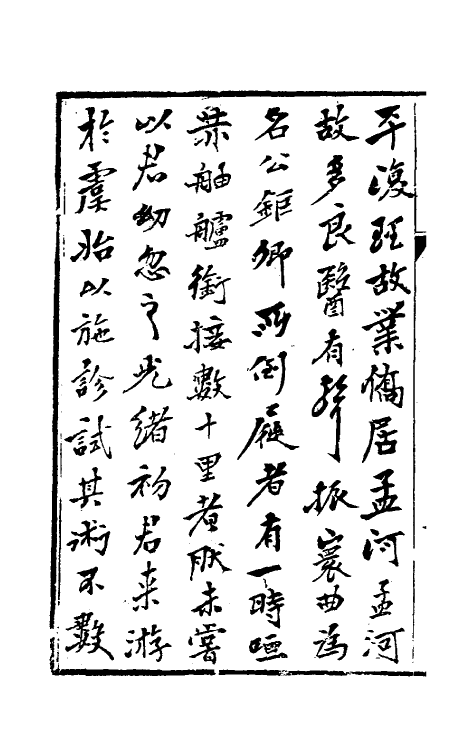 平復理故業僑居孟河孟河
故多良醫有聲振寰由為
名公鉅卿所倒屣者有一時咺
舳艫銜接數十里者朕未嘗
以君幼忽之光緒初君来游
於虞始以施診試其術不數